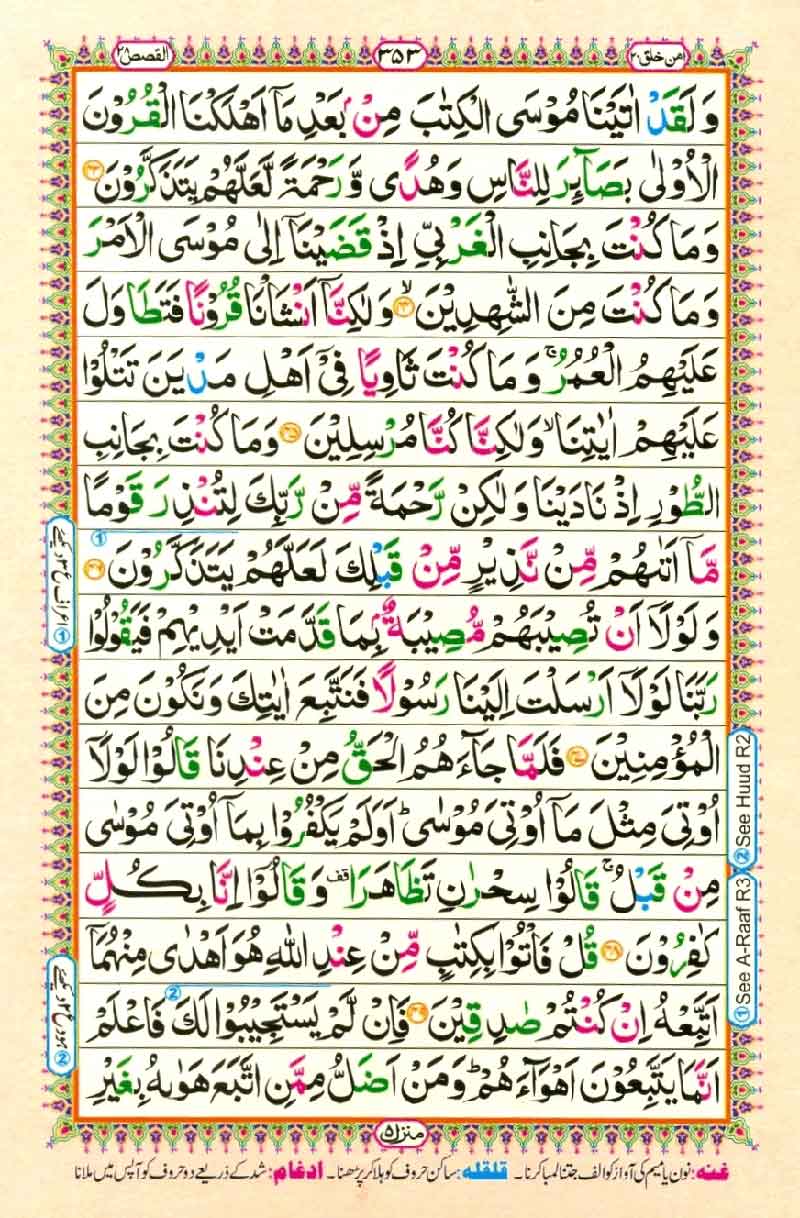 امن خلق ۲۰
۳۵۳
القصص ۲۸
وَ لَقَدْ اٰتَيْنَا مُوْسَى الْكِتٰبَ مِنْۢ بَعْدِ مَاۤ اَهْلَكْنَا الْقُرُوْنَ
الْاُوْلٰى بَصَآئِرَ لِلنَّاسِ وَ هُدًى وَّ رَحْمَةً لَّعَلَّهُمْ يَتَذَكَّرُوْنَ ۴۳
وَ مَا كُنْتَ بِجَانِبِ الْغَرْبِيِّ اِذْ قَضَيْنَاۤ اِلٰى مُوْسَى الْاَمْرَ
وَ مَا كُنْتَ مِنَ الشّٰهِدِيْنَ ۙ۴۴ وَ لٰكِنَّاۤ اَنْشَاْنَا قُرُوْنًا فَتَطَاوَلَ
عَلَيْهِمُ الْعُمُرُ ۚ وَ مَا كُنْتَ ثَاوِيًا فِيْۤ اَهْلِ مَدْيَنَ تَتْلُوْا
عَلَيْهِمْ اٰيٰتِنَا ۙ وَ لٰكِنَّا كُنَّا مُرْسِلِيْنَ ۴۵ وَ مَا كُنْتَ بِجَانِبِ
الطُّوْرِ اِذْ نَادَيْنَا وَ لٰكِنْ رَّحْمَةً مِّنْ رَّبِّكَ لِتُنْذِرَ قَوْمًا
مَّاۤ اَتٰىهُمْ مِّنْ نَّذِيْرٍ مِّنْ قَبْلِكَ لَعَلَّهُمْ يَتَذَكَّرُوْنَ ۴۶
وَ لَوْ لَاۤ اَنْ تُصِيْبَهُمْ مُّصِيْبَةٌۢ بِمَا قَدَّمَتْ اَيْدِيْهِمْ فَيَقُوْلُوْا
رَبَّنَا لَوْ لَاۤ اَرْسَلْتَ اِلَيْنَا رَسُوْلًا فَنَتَّبِعَ اٰيٰتِكَ وَ نَكُوْنَ مِنَ
الْمُؤْمِنِيْنَ ۴۷ فَلَمَّا جَآءَهُمُ الْحَقُّ مِنْ عِنْدِنَا قَالُوْا لَوْ لَاۤ
اُوْتِيَ مِثْلَ مَاۤ اُوْتِيَ مُوْسٰى ؕ اَوَ لَمْ يَكْفُرُوْا بِمَاۤ اُوْتِيَ مُوْسٰى
مِنْ قَبْلُ ۚ قَالُوْا سِحْرٰنِ تَظَاهَرَا قف وَ قَالُوْۤا اِنَّا بِكُلٍّ
كٰفِرُوْنَ ۴۸ قُلْ فَاْتُوْا بِكِتٰبٍ مِّنْ عِنْدِ اللّٰهِ هُوَ اَهْدٰى مِنْهُمَاۤ
اَتَّبِعْهُ اِنْ كُنْتُمْ صٰدِقِيْنَ ۴۹ فَاِنْ لَّمْ يَسْتَجِيْبُوْا لَكَ فَاعْلَمْ
اَنَّمَا يَتَّبِعُوْنَ اَهْوَآءَهُمْ ؕ وَ مَنْ اَضَلُّ مِمَّنِ اتَّبَعَ هَوٰىهُ بِغَيْرِ
① اعراف ع ۳ دیکھئے
② ہود ع ۲ دیکھئے
② See Huud R2
① See A-Raaf R3
منزل ۵
غنه: نون یا میم کی آواز کو الف جتنا لمبا کرنا۔ قلقله: ساکن حروف کو ہلا کر پڑھنا۔ ادغام: شد کے ذریعے دو حروف کو آپس میں ملانا